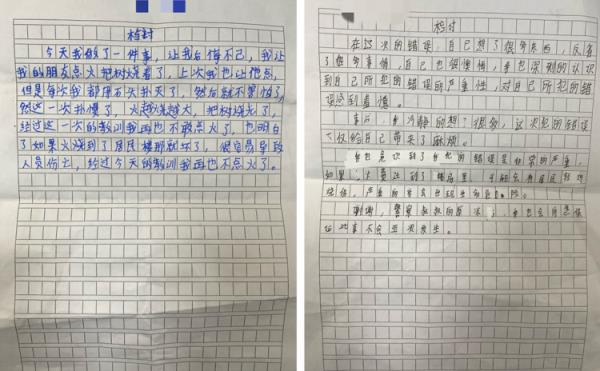 检讨
今天我做了一件事，让我后悔不已，我让
我的朋友点火把树烧着了，上次我也让他点，
但是每次我都用石头扑灭了，然后就不害怕了，
然这一次扑慢了，火越烧越大，把树烧光了，
经过这一次的教训我再也不敢点火了，也明白
了如果火烧到了居民楼那就坏了，很容易导致
人员伤亡，经过今天的教训我再也不点火了。
检讨
在这次的错误，自己想了很多东西，反省
了很多事情，自己也很懊悔，也深刻的认识
到自己所犯的错误的严重性，对自己所犯的错
误感到羞愧。
事后，冷静的想了很多，这次犯的错误
不仅给自己带来了麻烦。
自己意识到了自己的错误是非常的严重，
如果火蔓延到了楼房里，
严重的
谢谢，警察叔叔的
此事不会再次发生。